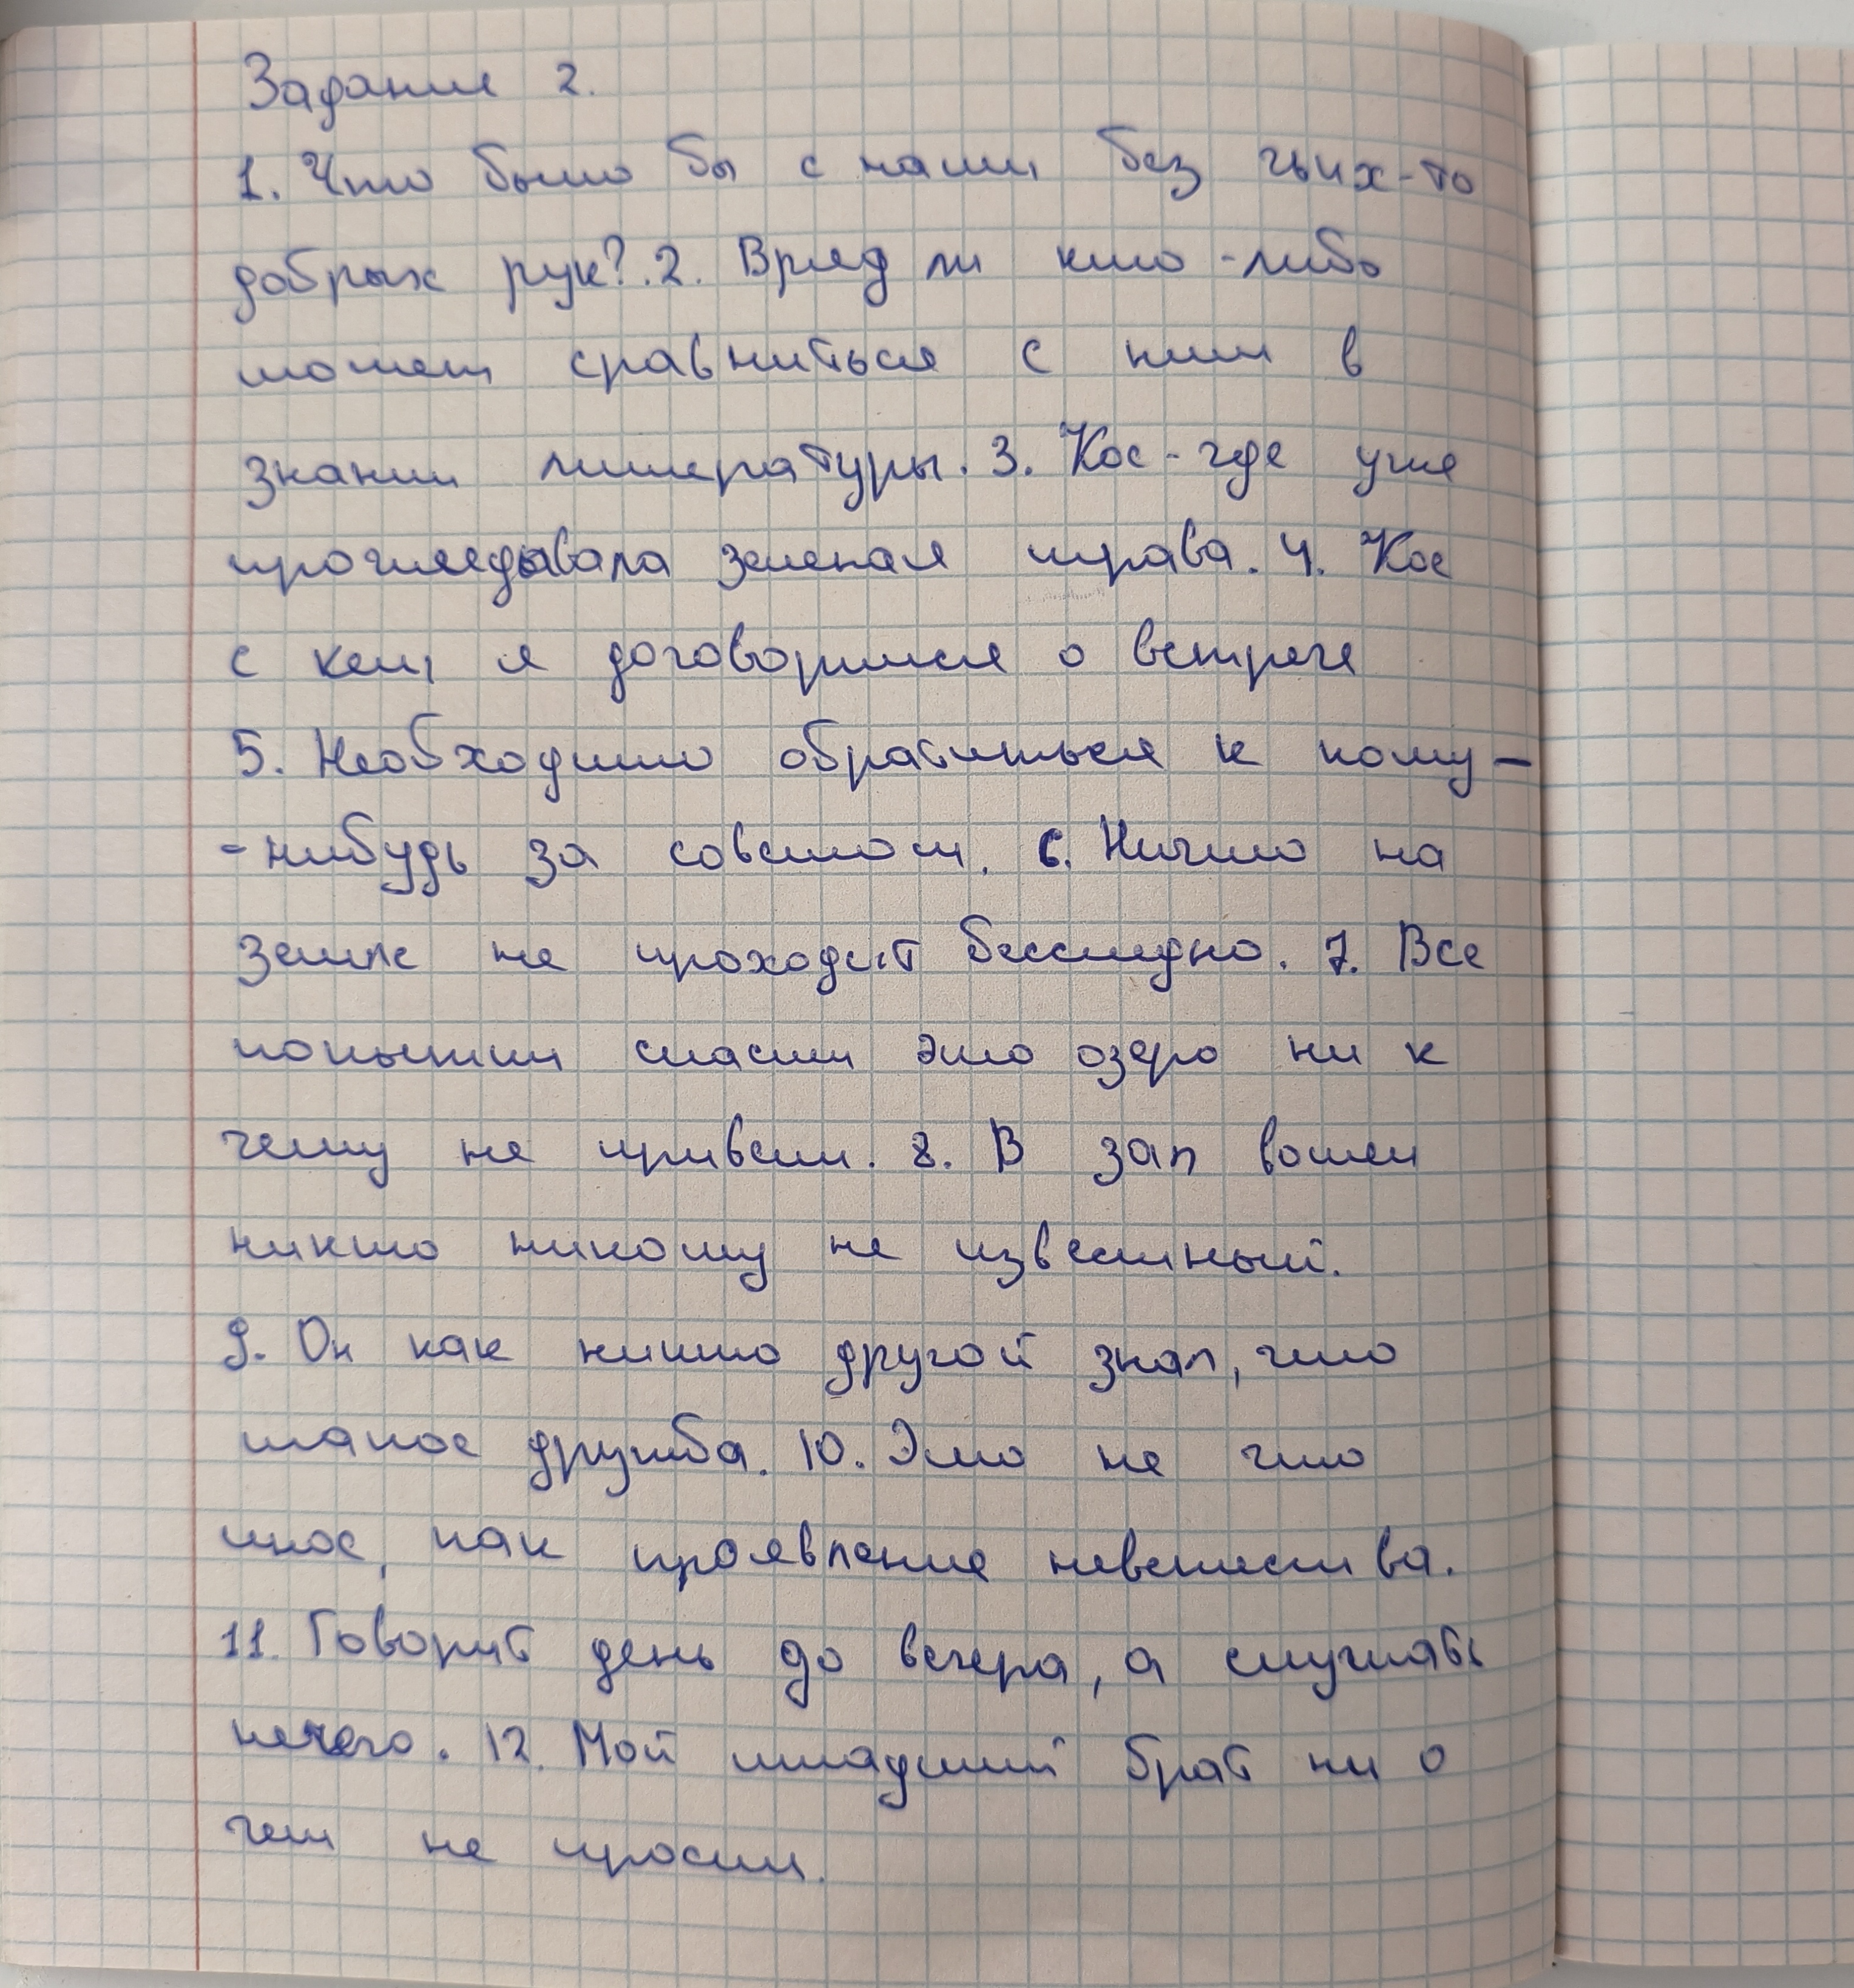 Задание 2.
1. Что было бы с нами без чьих-то
добрых рук?. 2. Вряд ли кто-либо
может сравниться с ним в
знании литературы. 3. Кое-где уже
проглядывала зеленая трава. 4. Кое
с кем я договорился о встрече
5. Необходимо обратиться к кому-
-нибудь за советом. 6. Ничто на
земле не проходит бесследно. 7. Все
попытки спасти это озеро ни к
чему не привели. 8. В зал вошел
никто никому не известный.
9. Он как никто другой знал, что
такое дружба. 10. Это не что
иное, как проявление невежества.
11. Говорит день до вечера, а слушать
нечего. 12. Мой младший брат ни о
чем не просил.